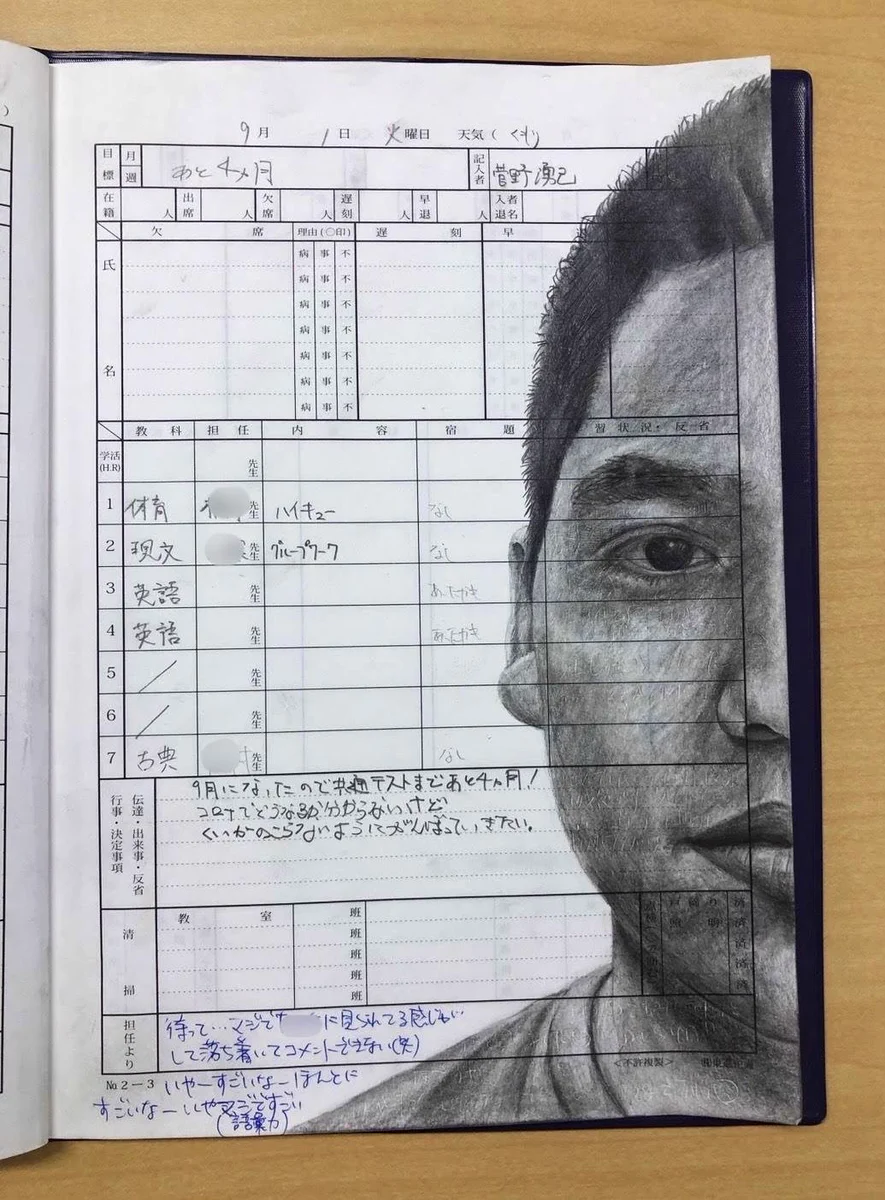 9月 1日 火曜日 天気（くもり）
目標 月週 あと4ヵ月 記入者 菅野湧己
在籍 人 出席 人 欠席 人 遅刻 人 早退 人 入退者名
欠席 理由(〇印) 遅刻 早
氏名
病 事 不
病 事 不
病 事 不
病 事 不
病 事 不
病 事 不
病 事 不
教科 担任 内容 宿題 習状況・反省
学活(H.R) 先生
1 体育 先生 ハイキュー なし
2 現文 先生 グループワーク なし
3 英語 先生
4 英語 先生
5 ／ 先生
6 ／ 先生
7 古典 先生 なし
伝達・出来事・反省
行事・決定事項
9月になったので共通テストまであと4ヵ月！
コロナでどうなるか分からないけど
くいがのこらないようにがんばっていきたい。
清掃 教室 班
班
班
班
班
担任より
待って…マジで に見られてる感じが
して落ち着いてコメントできない(笑)
<不許複製>
№2－3 いやーすごいなーほんとに
すごいなーいやマジですごい
(語彙力)